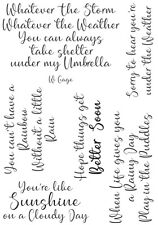 Whatever the Storm
Whatever the Weather
You can always
take shelter
under my Umbrella
W Gage
Sorry to hear you're
under the Weather
You can't have a
Rainbow
Without a little
Rain
Hope things get
Better Soon
When Life gives you
a Rainy Day
Play in the Puddles
You're like
Sunshine
on a Cloudy Day